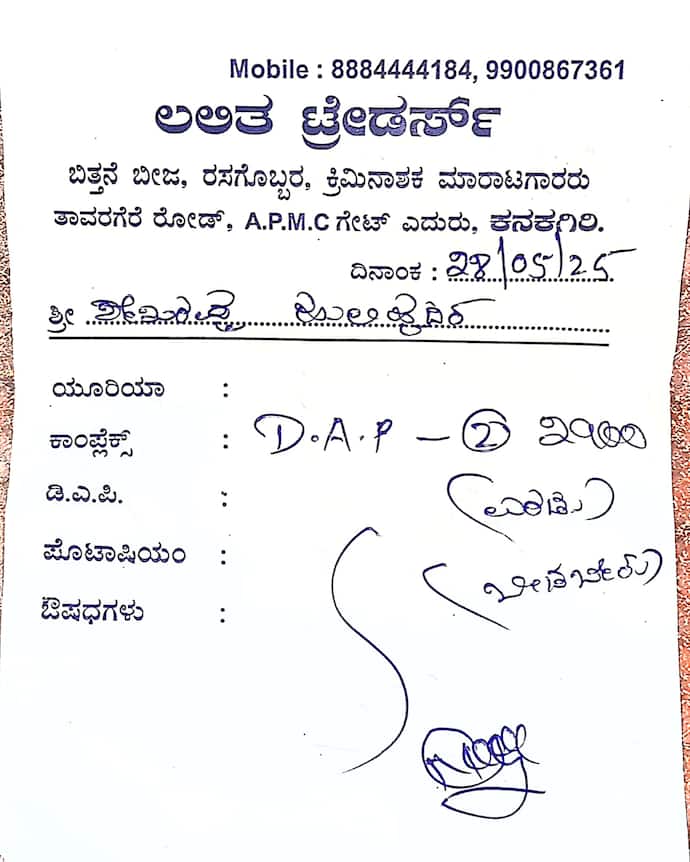 Mobile : 8884444184, 9900867361
ಲಲಿತ ಟ್ರೇಡರ್ಸ್
ಬಿತ್ತನೆ ಬೀಜ, ರಸಗೊಬ್ಬರ, ಕ್ರಿಮಿನಾಶಕ ಮಾರಾಟಗಾರರು
ತಾವರಗೆರೆ ರೋಡ್, A.P.M.C ಗೇಟ್ ಎದುರು, ಕನಕಗಿರಿ.
ದಿನಾಂಕ : 28/05/25
ಶ್ರೀ
ಯೂರಿಯಾ :
ಕಾಂಪ್ಲೆಕ್ಸ್ : D.A.P - 2
ಡಿ.ಎ.ಪಿ. :
ಪೊಟಾಷಿಯಂ :
ಔಷಧಗಳು :